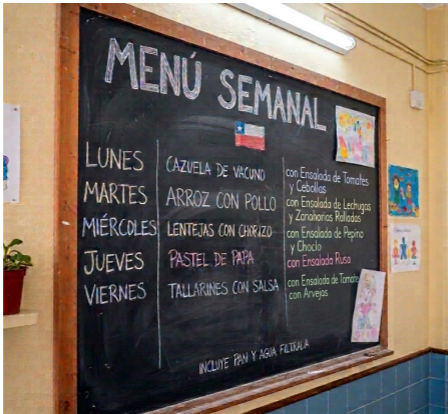 MENÚ SEMANAL
LUNES CAZUELA DE VACUNO con Ensalada de Tomates
y Cebollas
MARTES ARROZ CON POLLO con Ensalada de Lechugas
y Zanahorias Ralladas
MIÉRCOLES LENTEJAS CON CHORIZO con Ensalada de Pepino
y Choclo
JUEVES PASTEL DE PAPA con Ensalada Rusa
VIERNES TALLARINES CON SALSA con Ensalada de Tomate
con Arvejas
INCLUYE PAN Y AGUA